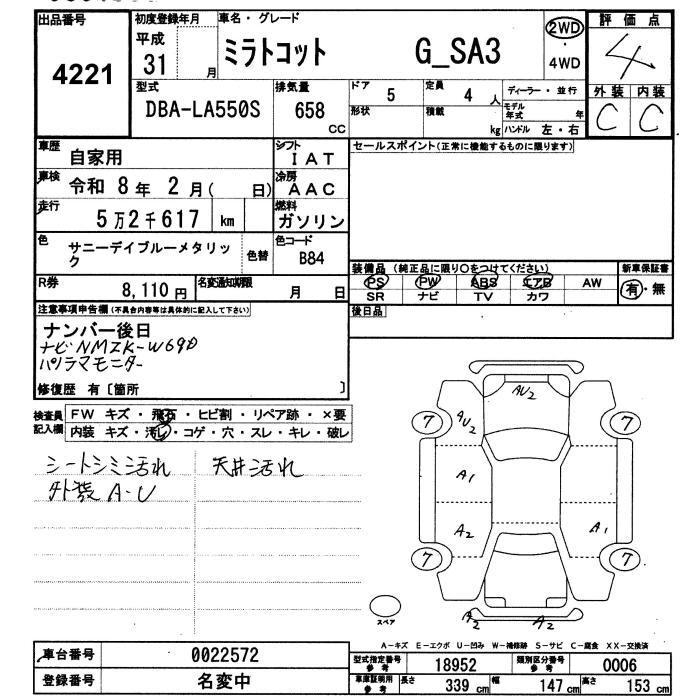 出品番号
4221
初度登録年月
平成
31 月
車名・グレード
ミラトコット G_SA3
2WD
・
4WD
評価点
4
外装 内装
C C
型式
DBA-LA550S
排気量
658
CC
ドア 5
形状
定員 4 人
積載 kg
ディーラー・並行
モデル年式 年
ハンドル 左・右
車歴
自家用
シフト
IAT
車検
令和 8年 2月( 日)
冷房
AAC
走行
5万2千617 km
燃料
ガソリン
色
サニーデイブルーメタリック
色替
色コード
B84
R券
8,110円
名変通知期限
月 日
セールスポイント(正常に機能するものに限ります)
装備品 (純正品に限り○をつけてください)
PS PW ABS エアB AW
SR ナビ TV カワ
新車保証書
有・無
後日品
注意事項申告欄(不具合内容等は具体的に記入して下さい)
ナンバー後日
ナビNMZK-W69D
パノラマモニター
修復歴 有〔箇所 〕
検査員
記入欄
FW キズ・飛石・ヒビ割・リペア跡・×要
内装 キズ・汚レ・コゲ・穴・スレ・キレ・破レ
シートシミ汚れ 天井汚れ
外装 A-U
AU2
AU2
7 7
A1
A2 A1
7 7
A2 A2
スペア
A-キズ E-エクボ U-凹み W-補修跡 S-サビ C-腐食 XX-交換済
車台番号
0022572
登録番号
名変中
型式指定番号
参考
18952
類別区分番号
参考
0006
車庫証明用
参考
長さ 339 cm
幅 147 cm
高さ 153 cm